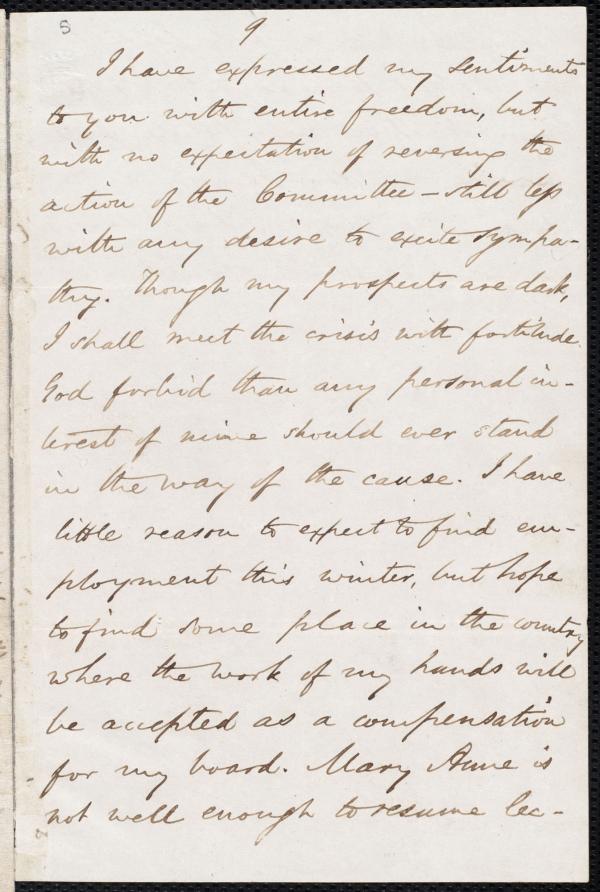 5
9
I have expressed my sentiments
to you with entire freedom, but
with no expectation of reversing the
action of the Committee - still less
with any desire to excite sympa-
thy. Though my prospects are dark,
I shall meet the crisis with fortitude.
God forbid than any personal in-
terest of mine should ever stand
in the way of the cause. I have
little reason to expect to find em-
ployment this winter, but hope
to find some place in the country
where the work of my hands will
be accepted as a compensation
for my board. Mary Anne is
not well enough to resume lec-